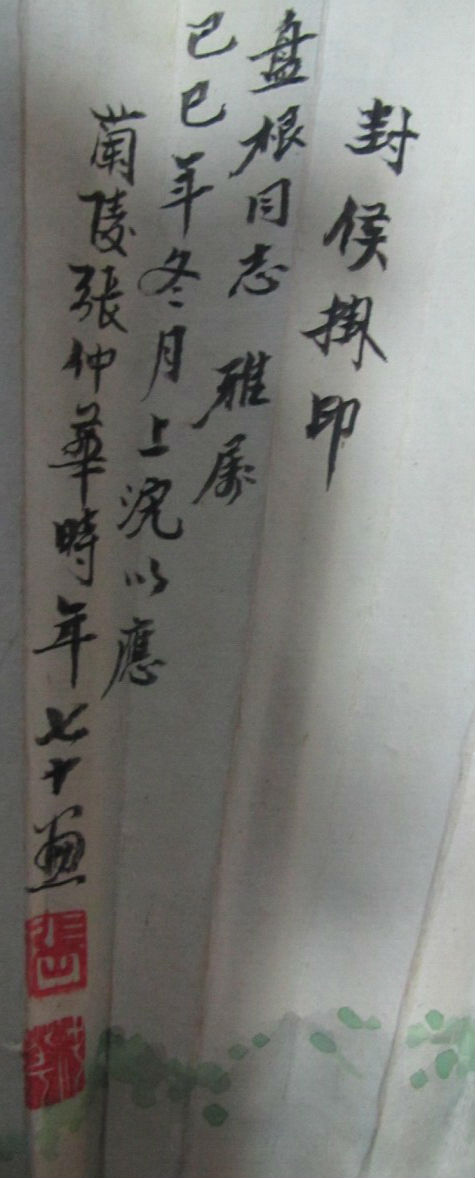 封侯掛印
己巳年冬月上浣以應
盘根同志 雅属
蘭陵張仲華時年七十画
張